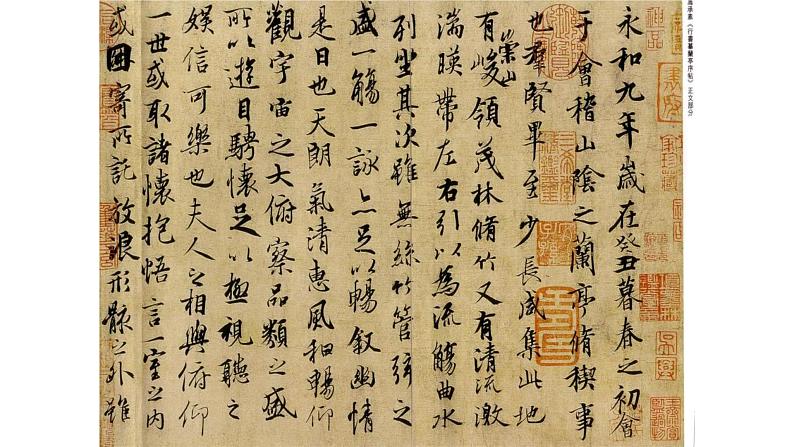 馮承素《行書摹蘭亭序帖》正文部分
永和九年歲在癸丑暮春之初會
于會稽山陰之蘭亭脩稧事
也羣賢畢至少長咸集此地
有崇山峻領茂林脩竹又有清流激
湍暎帶左右引以為流觴曲水
列坐其次雖無絲竹管弦之
盛一觴一詠亦足以暢敘幽情
是日也天朗氣清惠風和暢仰
觀宇宙之大俯察品類之盛
所以遊目騁懷足以極視聽之
娛信可樂也夫人之相與俯仰
一世或取諸懷抱悟言一室之內
或因寄所託放浪形骸之外雖